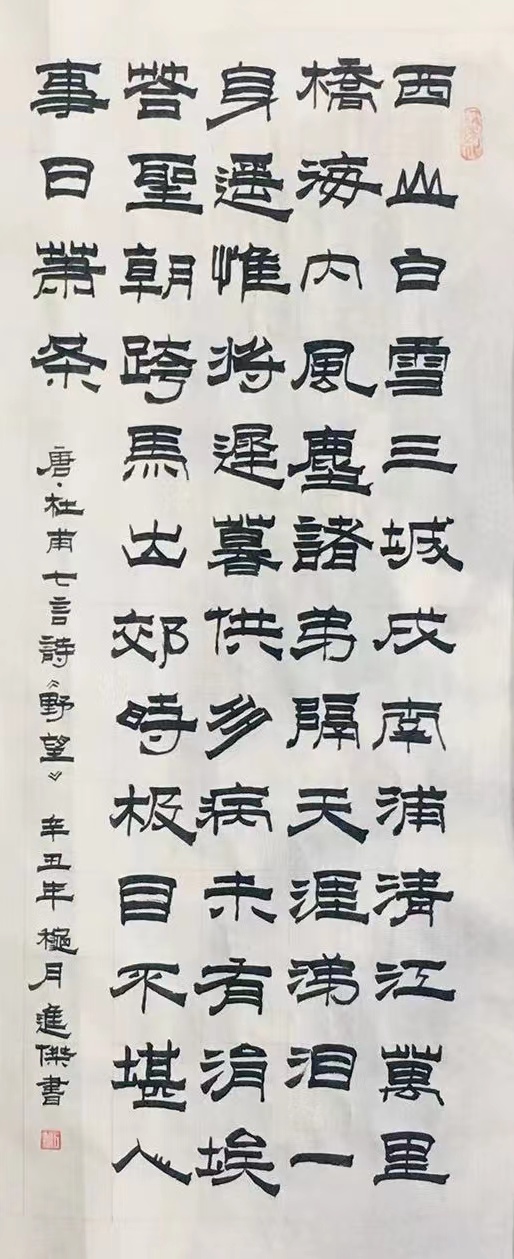 西山白雪三城戍南浦清江萬里
橋海内風塵諸弟隔天涯涕泪一
身遥惟将遲暮供多病未有涓埃
荅聖朝跨馬出郊時极目不堪人
事日蕭条
唐·杜甫七言詩《野望》 辛丑年極月進傑書